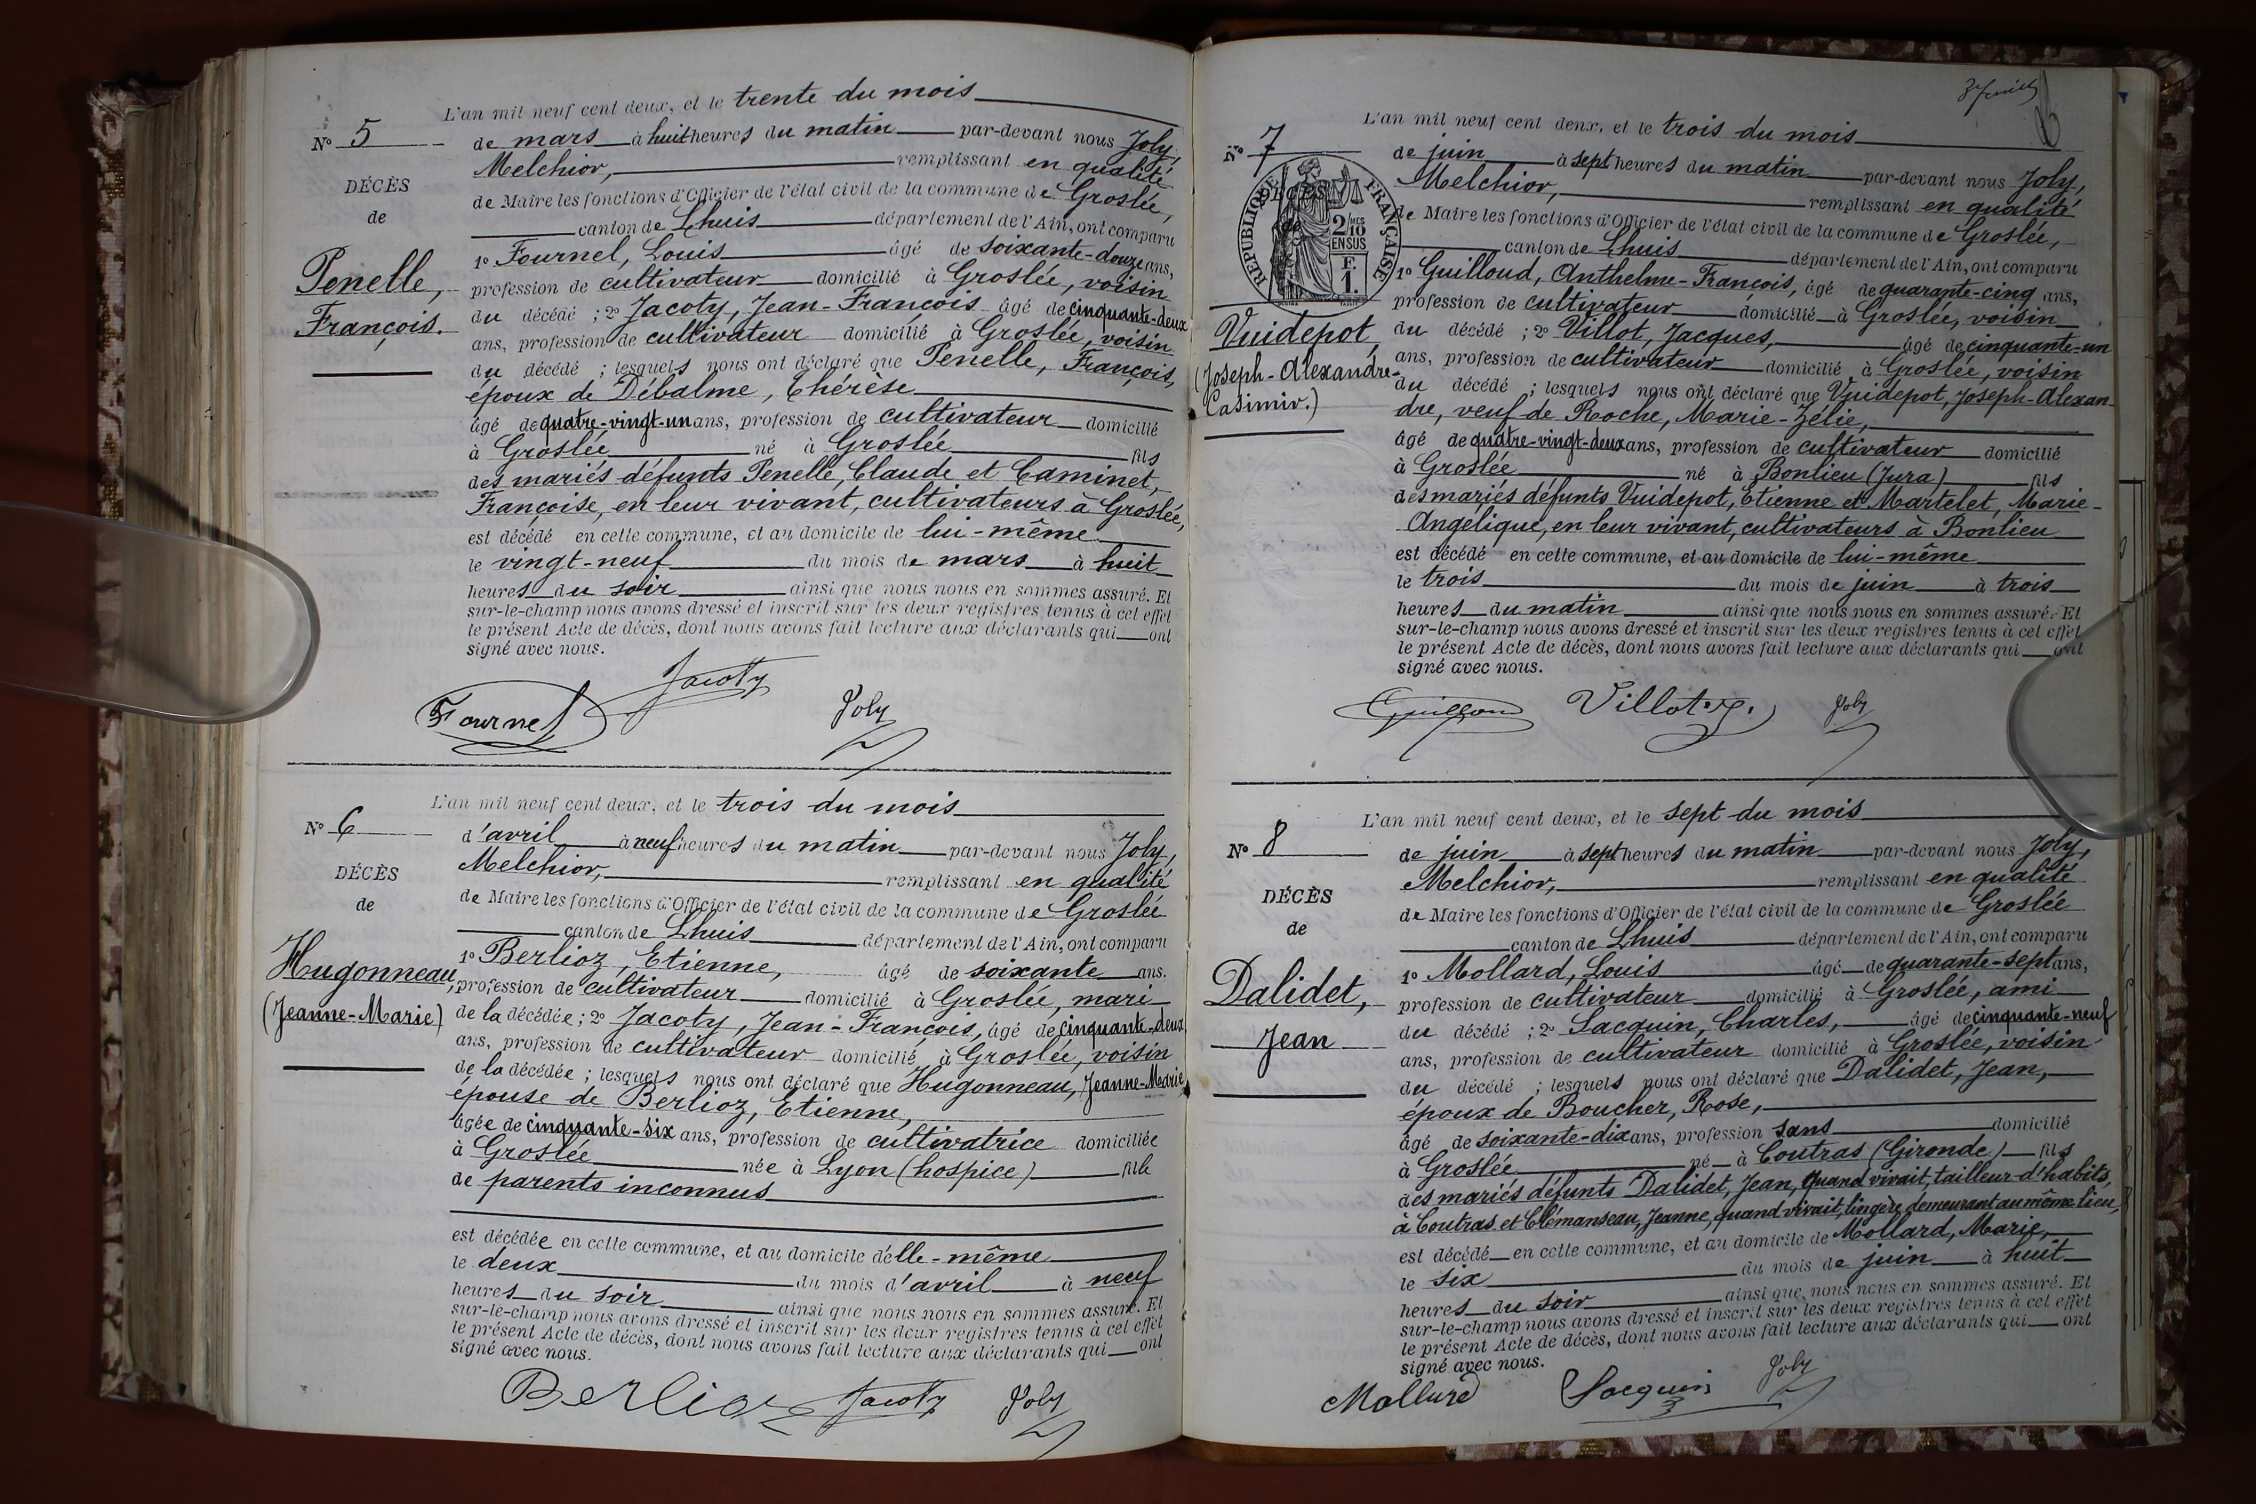 L'an mil neuf cent deux, et le trente du mois
N° 5
de mars à huit heures du matin par-devant nous Joly,
Melchior, remplissant en qualité
DÉCÈS
de Maire les fonctions d'Officier de l'état civil de la commune de Groslée,
de
canton de Lhuis département de l'Ain, ont comparu
1° Fournel, Louis âgé de soixante-douze ans,
Penelle,
profession de cultivateur domicilié à Groslée, voisin
François.
du décédé ; 2° Jacoty, Jean-François âgé de cinquante-deux
ans, profession de cultivateur domicilié à Groslée, voisin
du décédé ; lesquels nous ont déclaré que Penelle, François,
époux de Débalme, Thérèse
âgé de quatre-vingt-un ans, profession de cultivateur domicilié
à Groslée né à Groslée fils
des mariés défunts Penelle, Claude et Caminet,
Françoise, en leur vivant, cultivateurs à Groslée,
est décédé en cette commune, et au domicile de lui-même
le vingt-neuf du mois de mars à huit
heures du soir ainsi que nous nous en sommes assuré. Et
sur-le-champ nous avons dressé et inscrit sur les deux registres tenus à cet effet
le présent Acte de décès, dont nous avons fait lecture aux déclarants qui ont
signé avec nous.
Jacoty
Fournel Joly
L'an mil neuf cent deux, et le trois du mois
N° 6
d'avril à neuf heures du matin par-devant nous Joly,
Melchior, remplissant en qualité
DÉCÈS
de Maire les fonctions d'Officier de l'état civil de la commune de Groslée
de
canton de Lhuis département de l'Ain, ont comparu
1° Berlioz, Etienne, âgé de soixante ans.
Hugonneau,
profession de cultivateur domicilié à Groslée, mari
(Jeanne-Marie)
de la décédée ; 2° Jacoty, Jean-François, âgé de cinquante-deux
ans, profession de cultivateur domicilié à Groslée, voisin
de la décédée ; lesquels nous ont déclaré que Hugonneau, Jeanne-Marie,
épouse de Berlioz, Etienne,
âgée de cinquante-six ans, profession de cultivatrice domiciliée
à Groslée née à Lyon (hospice) fille
de parents inconnus
est décédée en cette commune, et au domicile d'elle-même
le deux du mois d'avril à neuf
heures du soir ainsi que nous nous en sommes assuré. Et
sur-le-champ nous avons dressé et inscrit sur les deux registres tenus à cet effet
le présent Acte de décès, dont nous avons fait lecture aux déclarants qui ont
signé avec nous.
Berlioz Jacoty Joly
L'an mil neuf cent deux, et le trois du mois
N° 7
de juin à sept heures du matin par-devant nous Joly,
Melchior, remplissant en qualité
DÉCÈS
de Maire les fonctions d'Officier de l'état civil de la commune de Groslée,
de
RÉPUBLIQUE FRANÇAISE
2/10 MES
EN SUS
F.
1.
canton de Lhuis département de l'Ain, ont comparu
1° Guilloud, Anthelme-François, âgé de quarante-cinq ans,
profession de cultivateur domicilié à Groslée, voisin
Vuidepot,
du décédé ; 2° Villot, Jacques, âgé de cinquante-un
(Joseph-Alexandre-
ans, profession de cultivateur domicilié à Groslée, voisin
Casimir.)
du décédé ; lesquels nous ont déclaré que Vuidepot, Joseph-Alexan-
dre, veuf de Roche, Marie-Zélie,
âgé de quatre-vingt-deux ans, profession de cultivateur domicilié
à Groslée né à Bonlieu (Jura) fils
des mariés défunts Vuidepot, Etienne et Martelet, Marie-
Angélique, en leur vivant, cultivateurs à Bonlieu
est décédé en cette commune, et au domicile de lui-même
le trois du mois de juin à trois
heures du matin ainsi que nous nous en sommes assuré. Et
sur-le-champ nous avons dressé et inscrit sur les deux registres tenus à cet effet
le présent Acte de décès, dont nous avons fait lecture aux déclarants qui ont
signé avec nous.
Villot Joly
L'an mil neuf cent deux, et le sept du mois
N° 8
de juin à sept heures du matin par-devant nous Joly,
Melchior, remplissant en qualité
DÉCÈS
de Maire les fonctions d'Officier de l'état civil de la commune de Groslée
de
canton de Lhuis département de l'Ain, ont comparu
1° Mollard, Louis âgé de quarante-sept ans,
Dalidet,
profession de cultivateur domicilié à Groslée, ami
Jean
du décédé ; 2° Sacquin, Charles, âgé de cinquante-neuf
ans, profession de cultivateur domicilié à Groslée, voisin
du décédé ; lesquels nous ont déclaré que Dalidet, Jean,
époux de Boucher, Rose,
âgé de soixante-dix ans, profession sans domicilié
à Groslée né à Coutras (Gironde) fils
des mariés défunts Dalidet, Jean, quand vivait, tailleur d'habits,
à Coutras et Clémanseau, Jeanne, quand vivait, lingère demeurant au même lieu,
est décédé en cette commune, et au domicile de Mollard, Marie,
le six du mois de juin à huit
heures du soir ainsi que nous nous en sommes assuré. Et
sur-le-champ nous avons dressé et inscrit sur les deux registres tenus à cet effet
le présent Acte de décès, dont nous avons fait lecture aux déclarants qui ont
signé avec nous.
Mollard Sacquin Joly